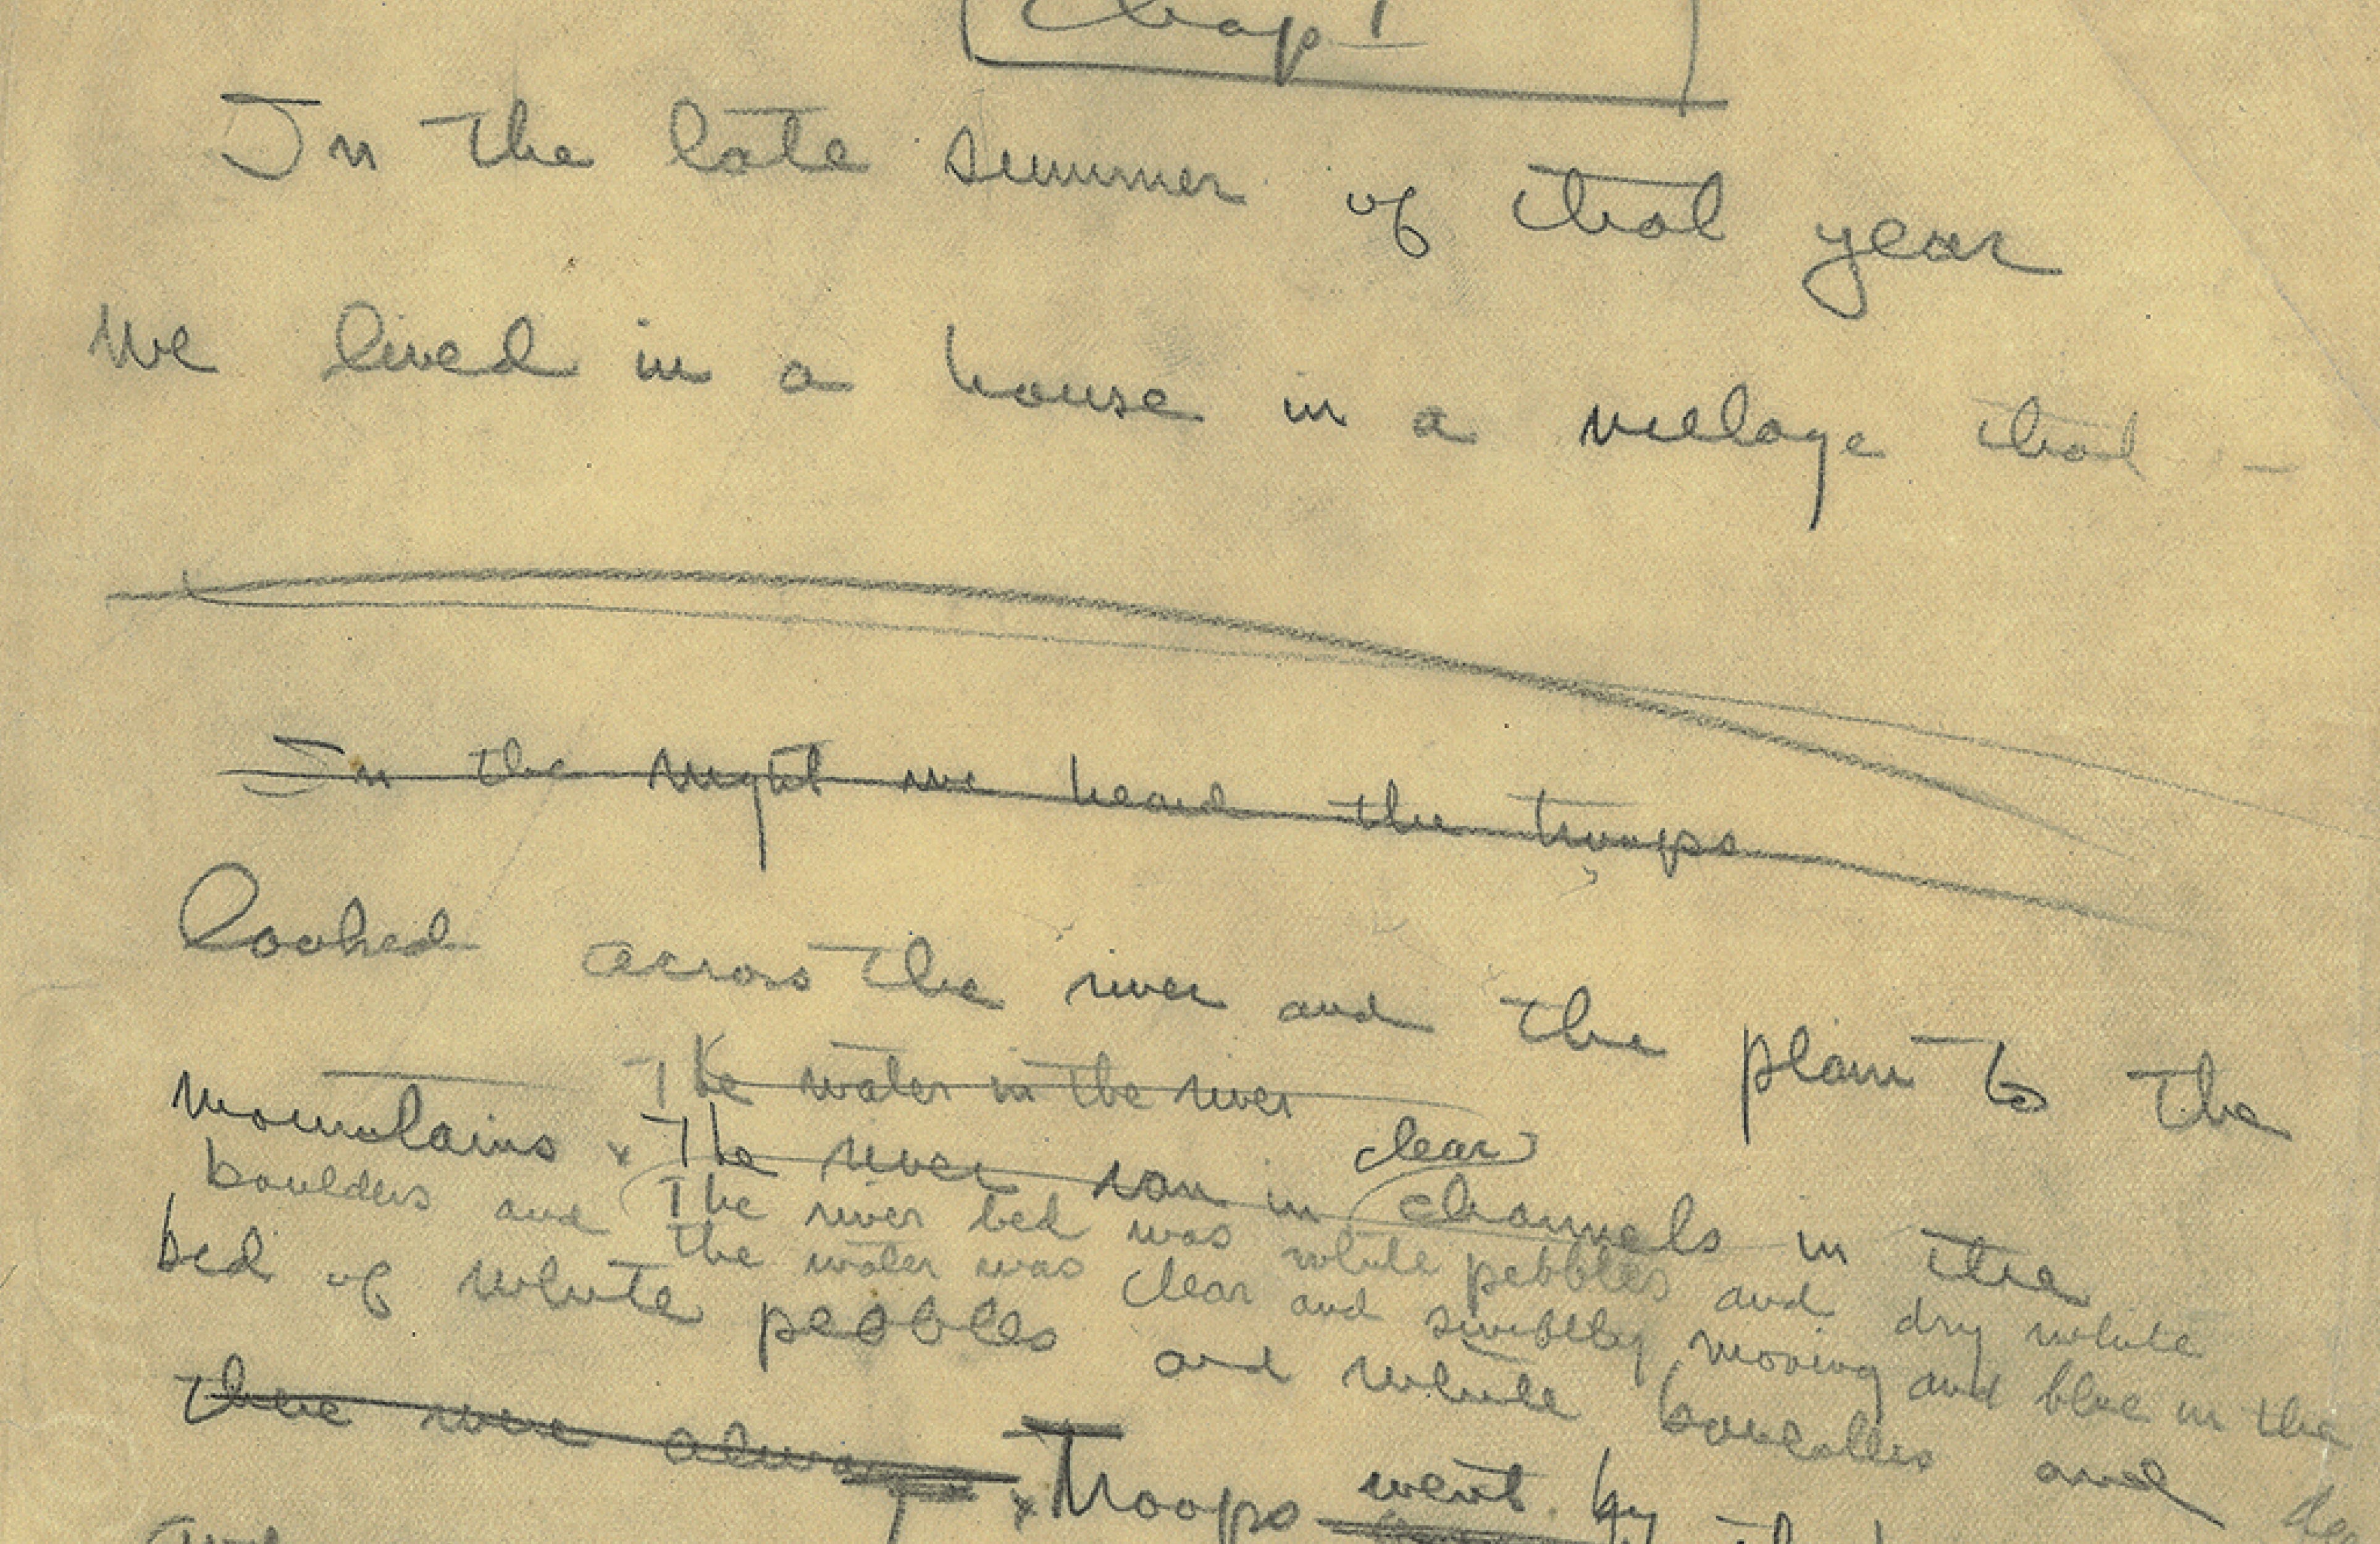 Chap I
In the late summer of that year
we lived in a house in a village that -
In the night we heard the troops
looked across the river and the plain to the
The water in the river
mountains. The river ran in clear channels in the
boulders and The river bed was white pebbles and dry white
the water was clear and swiftly moving and blue in the
bed of white pebbles and white boulders and
there were always Troops went by